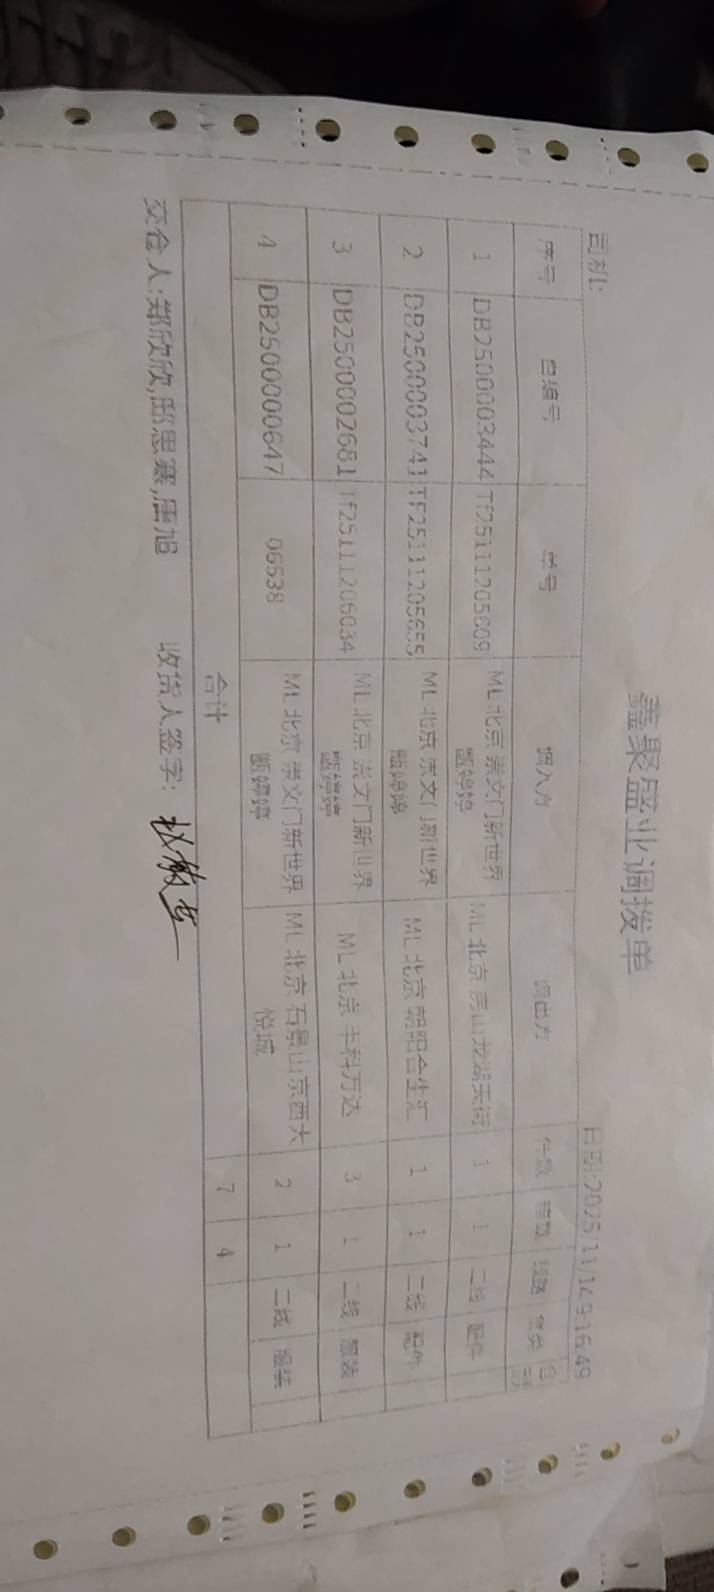 鑫聚盛业调拨单
司机: 日期:2025/11/14 9:16:49
序号 自编号 单号 调入方 调出方 件数 箱数 线路 货类
1 DB2500003444 Tf25111205609 ML 北京 崇文门新世界 ML 北京 房山龙湖天街 1 1 二线 配件
婷婷
2 DB2500003741 TF25111205655 ML 北京 崇文门新世界 ML 北京 朝阳合生汇 1 1 二线 配件
婷婷
3 DB2500002681 Tf25111206034 ML 北京 崇文门新世界 ML 北京 丰科万达 3 1 二线 服装
婷婷
4 DB2500000647 06538 ML 北京 崇文门新世界 ML 北京 石景山京西大 2 1 二线 服装
婷婷 悦城
合计 7 4
交仓人:郑欣欣,邸思寒,周旭 收货人签字: